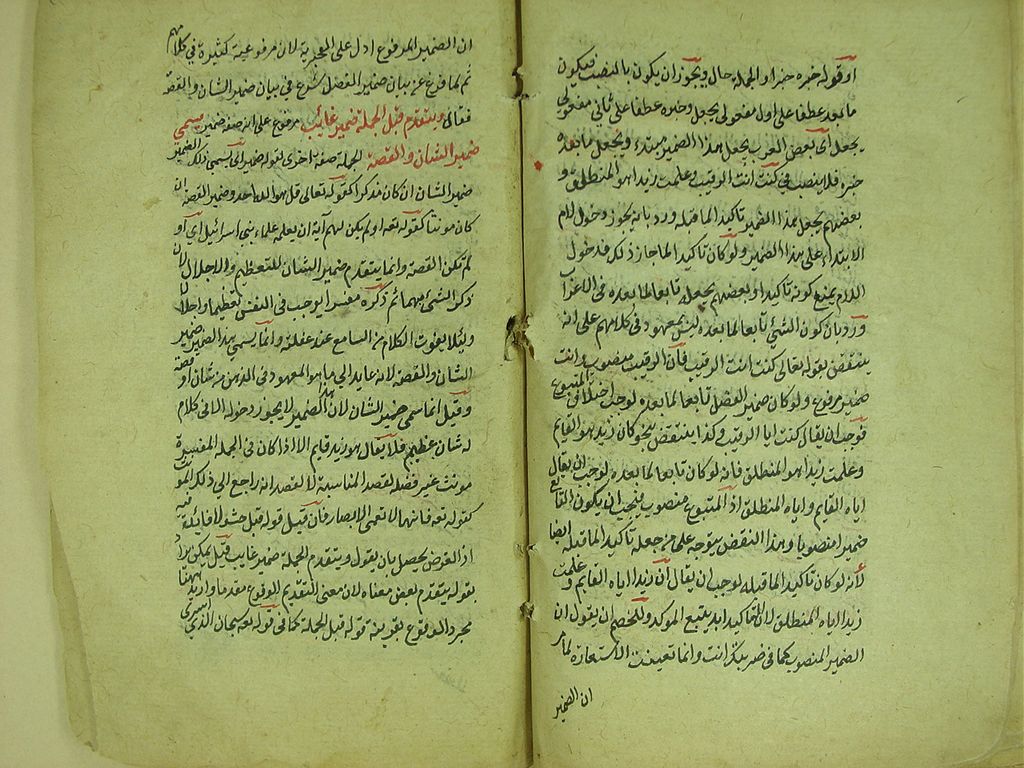 او قوله خبره خبر او الجملة حال ويجوز ان يكون بالنصب فيكون
ما بعد عطفا على اول مفعولى يجعل وخبره عطفا على ثانى مفعولى
يجعل اى بعض العرب يجعل هذا الضمير مبتدء ويجعل ما بعده
خبره فلا ينصب فى كنت انت الرقيب وعلمت زيدا هو المنطلق و
بعضهم يجعل هذا الضمير تاكيد الما قبله ورد بانه يجوز دخول لام
الابتداء على هذا الضمير ولو كان تاكيدا لما جاز ذلك فدخول
اللام يمنع كونه تاكيدا وبعضهم يجعله تابعا لما بعده فى الاعراب
ورد بان كون الشئ تابعا لما بعده ليس بمعهود فى كلامهم على انه
ينتقض بقوله تعالى كنت انت الرقيب فان الرقيب منصوب وانت
ضمير مرفوع ولو كان ضمير الفصل تابعا لما بعده لوجب المتبوع
فوجب ان يقال كنت اياك الرقيب وكذا ينتقض بنحو كان زيد هو القايم
وعلمت زيدا هو المنطلق فانه لو كان تابعا لما بعده لوجب ان يقال
اياه القايم واياه المنطلق اذ المتبوع منصوب فيجب ان يكون التابع
ضميرا منصوبا وهذا النقض يتوجه على من جعله تاكيد الما قبله ايضا
لانه لو كان تاكيد الما قبله لوجب ان يقال ان زيدا اياه القايم وعلمت
زيدا اياه المنطلق لان التاكيد ابدا يتبع الموكد وللخصم ان يقول ان
الضمير المنصوب كما فى ضربتك انت وانما تعينت الاستعارة لما مر
ان الضمير
ان الضمير المرفوع ادل على الخبرية لان مرفوعية كثيرة فى كلامهم
ثم لما فرغ عن بيان ضمير الفصل شرع فى بيان ضمير الشان والقصة
فقال ويتقدم قبل الجملة ضمير غايب مرفوع على انه صفة ضمير يسمى
ضمير الشان والقصة الجملة صفة اخرى لقوله ضمير اى يسمى ذلك الضمير
ضمير الشان ان كان مذكرا كقوله تعالى قل هو الله احد وضمير القصة ان
كان مونثا كقوله تعه اولم يكن لهم آية ان يعلمه علماء بنى اسرائيل اى او
لم تكن القصة وانما يتقدم ضمير الشان للتعظيم والاجلال لان
ذكر الشئ مبهما ثم ذكره مفسرا يوجب فى النفس تعظيما واجلالا
ولئلا يفوت الكلام من السامع عند غفلته وانما يسمى بهذا الضمير ضمير
الشان والقصة لانه عايد الى ما هو المعهود فى الذهن من شان او قصة
وقيل انما سمى ضمير الشان لان هذا الضمير لا يجوز دخوله الا فى كلام
له شان عظيم فلا يقال هو زيد قايم الا اذا كان فى الجملة المفسرة
مونث غير فضلة لقصد المناسبة لا لقصد انه راجع الى ذلك المونث
كقوله تعه فانها لا تعمى الابصار فان قيل قوله قبل حشو لا فايدة فيه
اذ الغرض يحصل بان يقول ويتقدم الجملة ضمير غايب قيل يمكن يراد
بقوله يتقدم لبعض معناه لان معنى التقديم الوقوع مقدما واريد ههنا
مجرد الوقوع بقرينة قوله قبل الجملة كما فى قوله تعه سبحان الذى اسرى